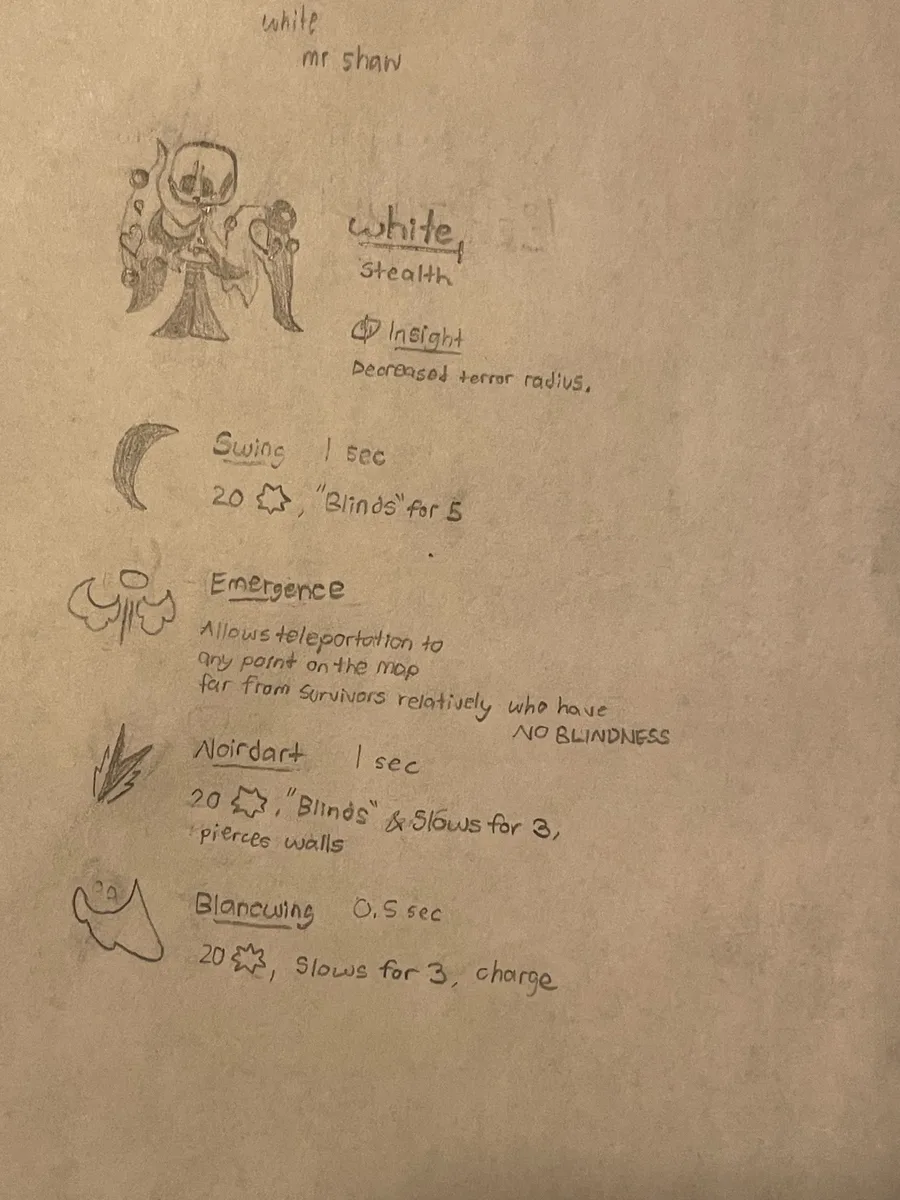 white
mr shaw
white,
stealth
Insight
Decreased terror radius.
Swing 1 sec
20 , "Blinds" for 5
Emergence
Allows teleportation to
any point on the map
far from survivors relatively who have
NO BLINDNESS
Noirdart 1 sec
20 , "Blinds" & Slows for 3,
pierces walls
Blancwing 0.5 sec
20 , Slows for 3, charge